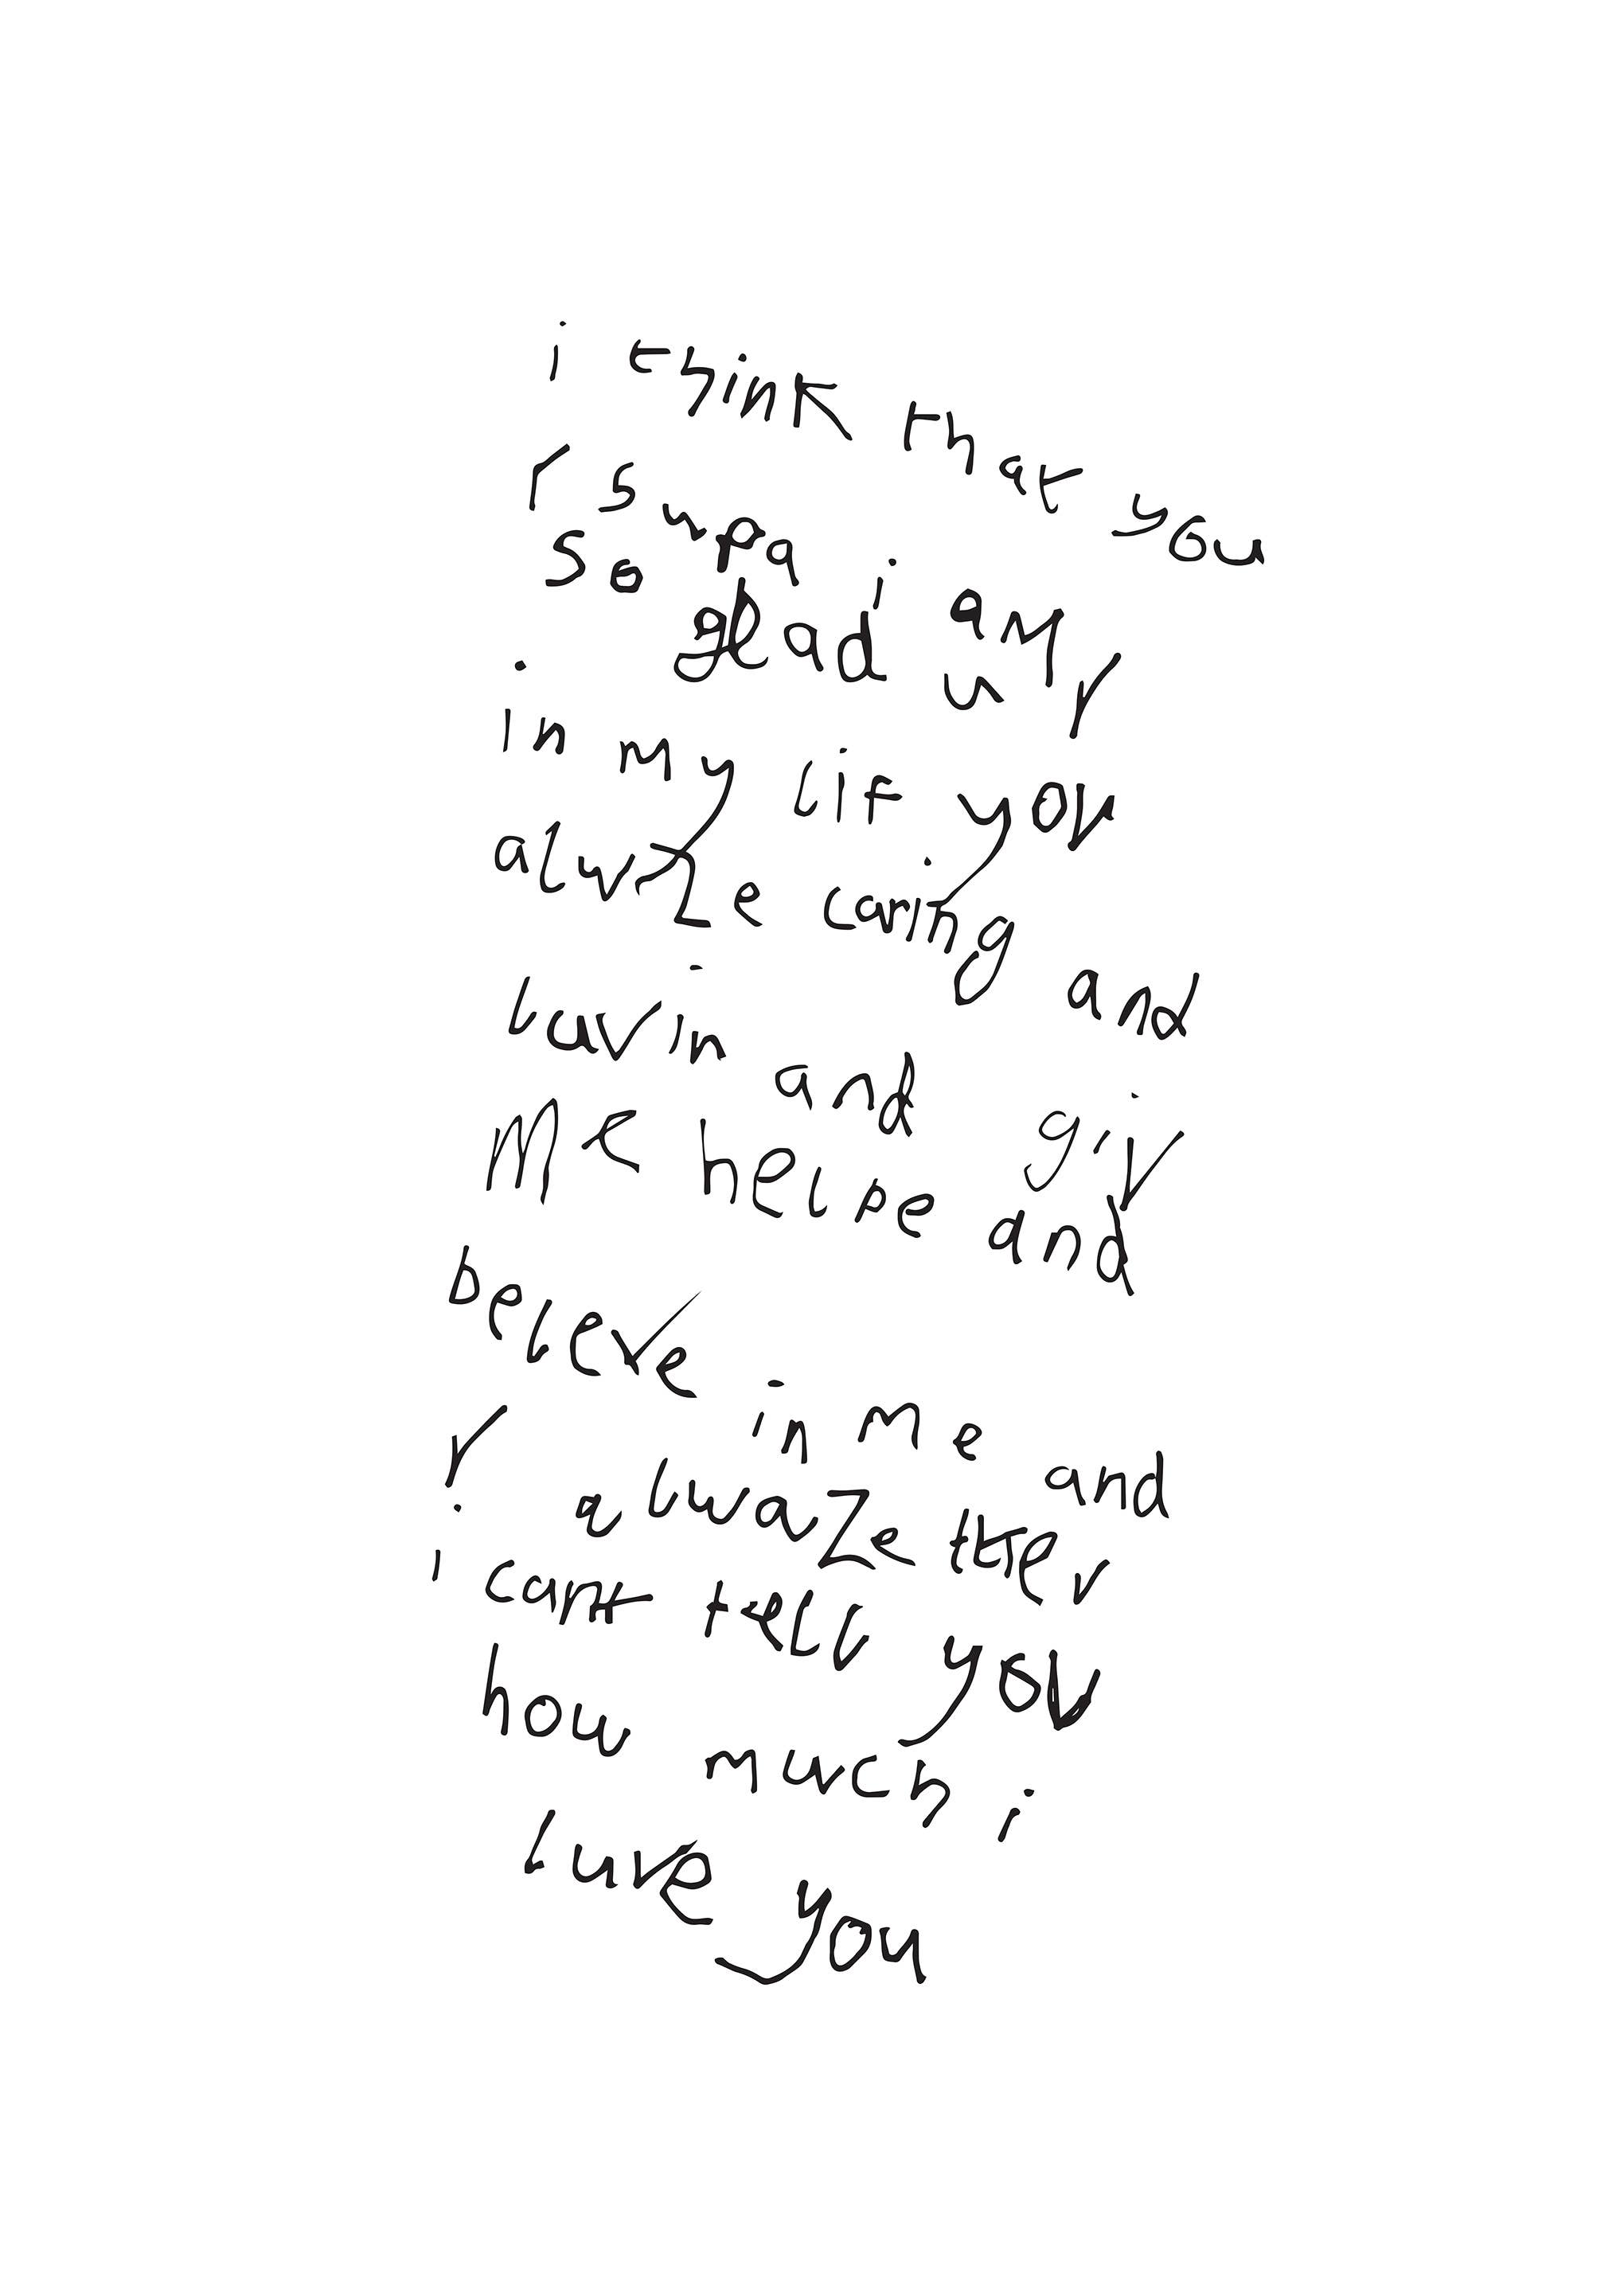 i think that you
r supa i am
so glad u r
in my lif you
alwaze caring and
luvin and giv
me helpe and
beleve in me and
r alwaze ther
i cant tell you
how much i
luve you